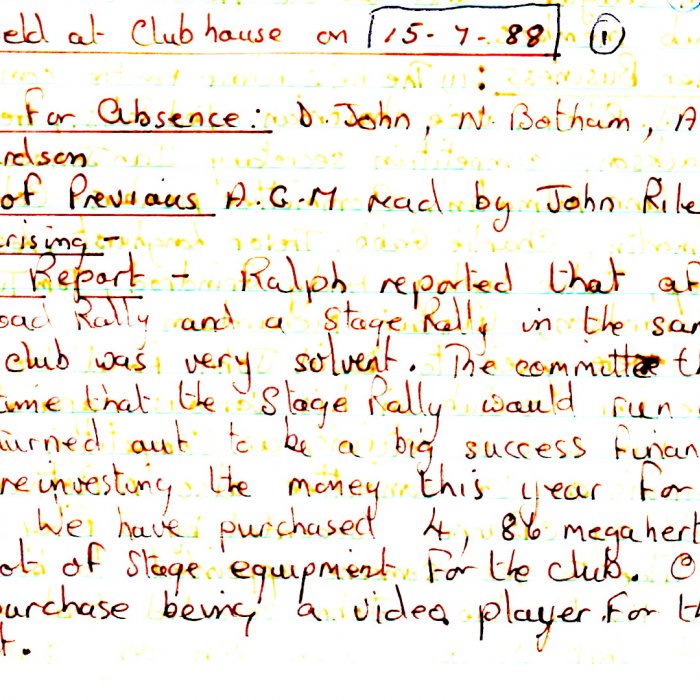 eld at Clubhouse on 15-7-88 1
For Absence: D. John, N. Botham, A
rdson
of Previous A.G.M read by John Rile
rising -
Report - Ralph reported that af
oad Rally and a Stage Rally in the sam
club was very solvent. The committee th
time that the Stage Rally would run
turned out to be a big success finan
reinvesting the money this year for
We have purchased 4, 86 megahert
ot of Stage equipment for the club. O
purchase being a video player for th
t.